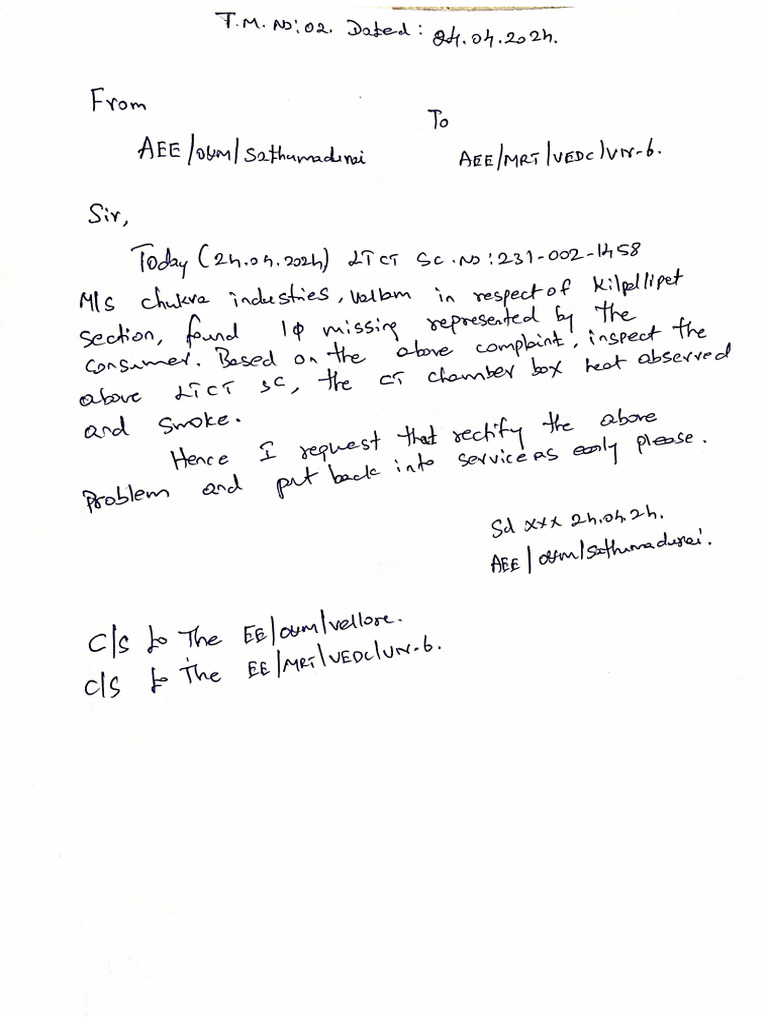 T.M. NO: 02. Dated: 24.04.2024.
From
To
AEE/O&M/Sathumadurai
AEE/MRT/VEDC/VR-6.
Sir,
Today (24.04.2024) LTCT SC.NO: 231-002-1458
M/S chukra industies, in respect of Kilpallipet
section, found 1Φ missing represented by the
consumer. Based on the above complaint, inspect the
above LTCT SC, the CT chamber box heat absorved
and smoke.
Hence I request that rectify the above
Problem and put back into service as early please.
Sd xxx 24.04.24.
AEE/O&M/Sathumadurai.
C/S to The EE/O&M/vellore.
C/S to The EE/MRT/VEDC/VR-6.